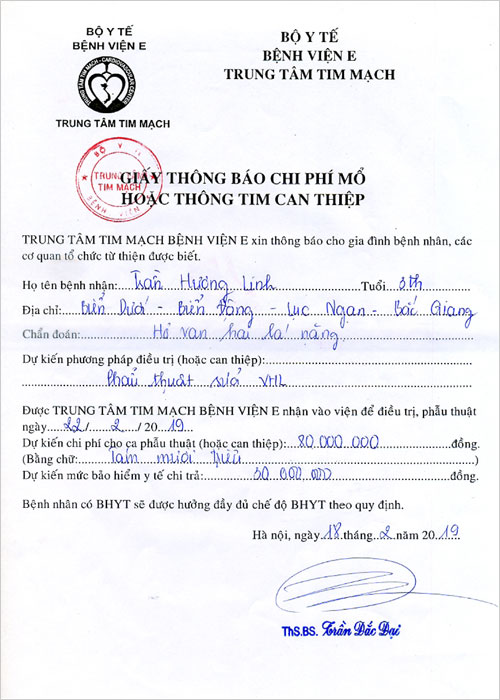 BỘ Y TẾ
BỆNH VIỆN E
TRUNG TÂM TIM MẠCH - CARDIOVASCULAR CENTER
TRUNG TÂM TIM MẠCH
BỘ Y TẾ
BỆNH VIỆN E
TRUNG TÂM TIM MẠCH
BỘ Y
TRUNG TÂM
TIM MẠCH
GIẤY THÔNG BÁO CHI PHÍ MỔ
HOẶC THÔNG TIM CAN THIỆP
TRUNG TÂM TIM MẠCH BỆNH VIỆN E xin thông báo cho gia đình bệnh nhân, các
cơ quan tổ chức từ thiện được biết.
Họ tên bệnh nhân: Trần Hương Linh Tuổi 3th
Địa chỉ: Biển Dưới - Biển Động - Lục Ngạn - Bắc Giang
Chẩn đoán: Hở van hai lá nặng
Dự kiến phương pháp điều trị (hoặc can thiệp):
Phẫu thuật sửa VHL
Được TRUNG TÂM TIM MẠCH BỆNH VIỆN E nhận vào viện để điều trị, phẫu thuật
ngày 22/ 2 / 2019
Dự kiến chi phí cho ca phẫu thuật (hoặc can thiệp): 80.000.000 đồng.
(Bằng chữ: Tám mươi triệu)
Dự kiến mức bảo hiểm y tế chi trả: 30.000.000 đồng.
Bệnh nhân có BHYT sẽ được hưởng đầy đủ chế độ BHYT theo quy định.
Hà nội, ngày 18 tháng 2 năm 2019
ThS.BS. Trần Đắc Đại